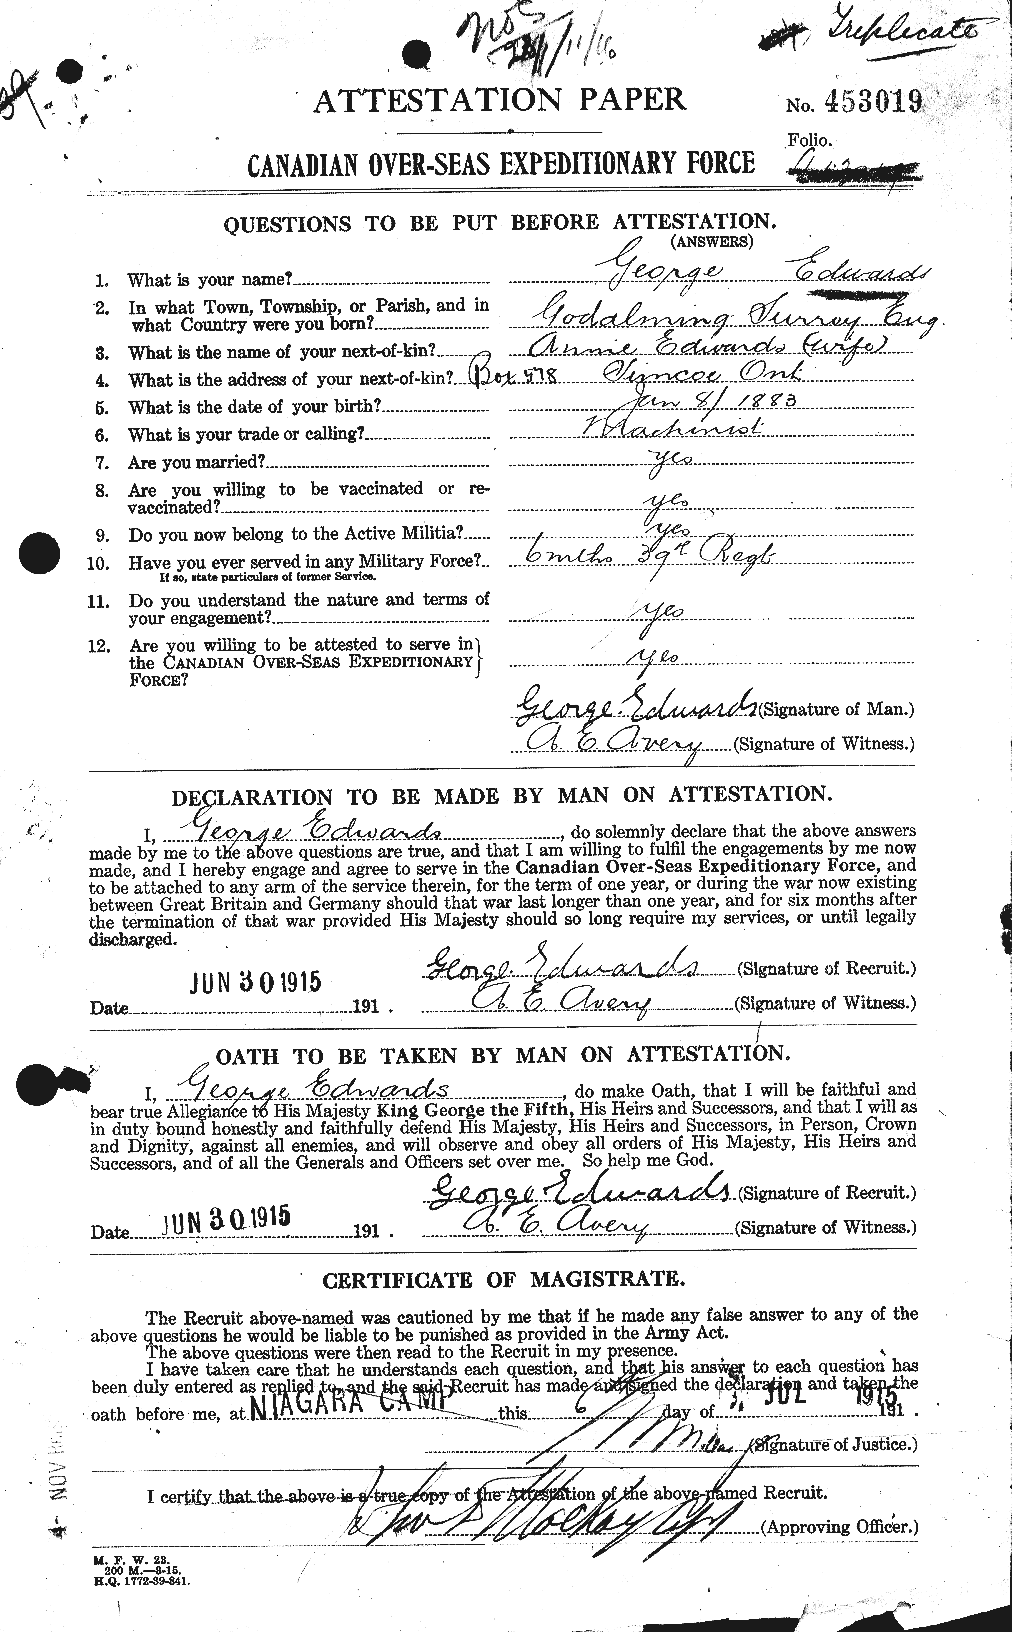 Triplicate
ATTESTATION PAPER
No. 453019
Folio.
CANADIAN OVER-SEAS EXPEDITIONARY FORCE
QUESTIONS TO BE PUT BEFORE ATTESTATION.
(ANSWERS)
1. What is your name? George Edwards
2. In what Town, Township, or Parish, and in
what Country were you born? Godalming Surrey Eng.
3. What is the name of your next-of-kin? Annie Edwards (wife)
4. What is the address of your next-of-kin? Box 578 Simcoe Ont
5. What is the date of your birth? Jan 8/1883
6. What is your trade or calling? Machinist
7. Are you married? yes
8. Are you willing to be vaccinated or re-
vaccinated? yes
9. Do you now belong to the Active Militia? yes
10. Have you ever served in any Military Force? 6 mths 39th Regt
If so, state particulars of former Service.
11. Do you understand the nature and terms of
your engagement? yes
12. Are you willing to be attested to serve in
the CANADIAN OVER-SEAS EXPEDITIONARY yes
FORCE?
George Edwards (Signature of Man.)
A E Avery (Signature of Witness.)
DECLARATION TO BE MADE BY MAN ON ATTESTATION.
I, George Edwards, do solemnly declare that the above answers
made by me to the above questions are true, and that I am willing to fulfil the engagements by me now
made, and I hereby engage and agree to serve in the Canadian Over-Seas Expeditionary Force, and
to be attached to any arm of the service therein, for the term of one year, or during the war now existing
between Great Britain and Germany should that war last longer than one year, and for six months after
the termination of that war provided His Majesty should so long require my services, or until legally
discharged.
George Edwards (Signature of Recruit.)
JUN 30 1915
Date 191 . A. E. Avery (Signature of Witness.)
OATH TO BE TAKEN BY MAN ON ATTESTATION.
I, George Edwards, do make Oath, that I will be faithful and
bear true Allegiance to His Majesty King George the Fifth, His Heirs and Successors, and that I will as
in duty bound honestly and faithfully defend His Majesty, His Heirs and Successors, in Person, Crown
and Dignity, against all enemies, and will observe and obey all orders of His Majesty, His Heirs and
Successors, and of all the Generals and Officers set over me. So help me God.
George Edwards (Signature of Recruit.)
JUN 30 1915
Date 191 . A. E. Avery (Signature of Witness.)
CERTIFICATE OF MAGISTRATE.
The Recruit above-named was cautioned by me that if he made any false answer to any of the
above questions he would be liable to be punished as provided in the Army Act.
The above questions were then read to the Recruit in my presence.
I have taken care that he understands each question, and that his answer to each question has
been duly entered as replied to, and the said Recruit has made and signed the declaration and taken the
oath before me, at NIAGARA CAMP this 6 day of JUL 1915 191 .
(Signature of Justice.)
I certify that the above is a true copy of the Attestation of the above-named Recruit.
(Approving Officer.)
M. F. W. 23.
200 M.—3-15.
H.Q. 1772-39-841.
NOV